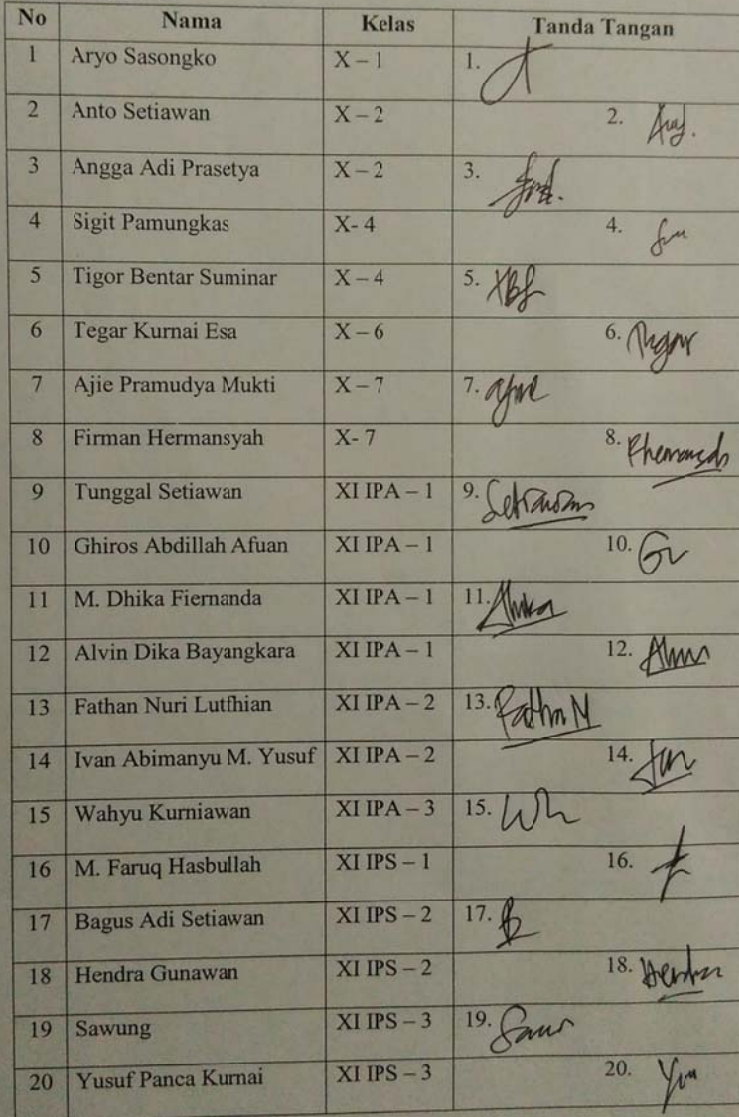 No Nama Kelas Tanda Tangan
1 Aryo Sasongko X – 1 1.
2 Anto Setiawan X – 2 2.
3 Angga Adi Prasetya X – 2 3.
4 Sigit Pamungkas X- 4 4.
5 Tigor Bentar Suminar X – 4 5. TBS
6 Tegar Kurnai Esa X – 6 6. Tegar
7 Ajie Pramudya Mukti X – 7 7. Ajie
8 Firman Hermansyah X- 7 8.
9 Tunggal Setiawan XI IPA – 1 9. Setiawan
10 Ghiros Abdillah Afuan XI IPA – 1 10.
11 M. Dhika Fiernanda XI IPA – 1 11. Dhika
12 Alvin Dika Bayangkara XI IPA – 1 12.
13 Fathan Nuri Lutfhian XI IPA – 2 13. Fathan N
14 Ivan Abimanyu M. Yusuf XI IPA – 2 14.
15 Wahyu Kurniawan XI IPA – 3 15.
16 M. Faruq Hasbullah XI IPS – 1 16.
17 Bagus Adi Setiawan XI IPS – 2 17.
18 Hendra Gunawan XI IPS – 2 18. Hendra
19 Sawung XI IPS – 3 19.
20 Yusuf Panca Kurnai XI IPS – 3 20.